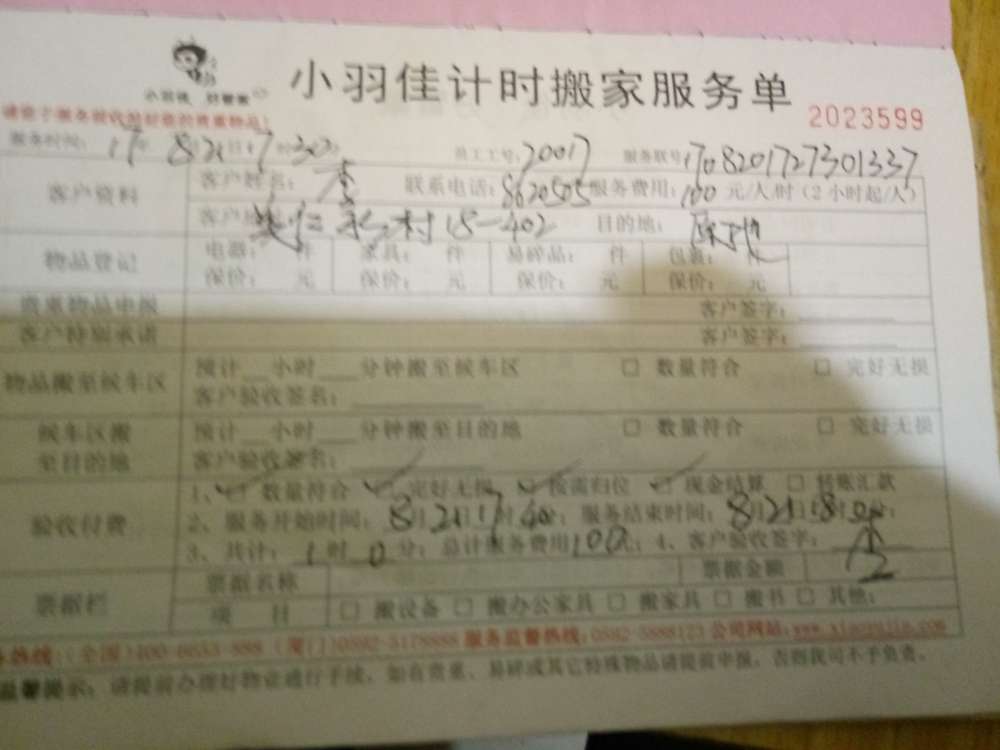 小羽佳 好管家
小羽佳计时搬家服务单
2023599
服务时间: 17年 8月21日17时30分 员工工号: 20017 服务联号:
客户资料
客户姓名: 李 联系电话: 8620505 服务费用: 100 元/人/时 (2小时起/人)
村 15-402 目的地:
物品登记
电器: 件 家具: 件 易碎品: 件 包裹: 件
保价: 元 保价: 元 保价: 元 保价: 元
贵重物品申报 客户签字:
客户特别承诺 客户签字:
物品搬至候车区
预计 小时 分钟搬至候车区 □ 数量符合 □ 完好无损
客户验收签名:
候车区搬
至目的地
预计 小时 分钟搬至目的地 □ 数量符合 □ 完好无损
客户验收签名:
验收付费
1、☑ 数量符合 ☑ 完好无损 ☑ 按需归位 ☑ 现金结算 □ 转账汇款
2、服务开始时间: 8月21日17时 分; 服务结束时间: 8月21日18时 分;
3、共计: 1 时 0 分; 总计服务费用100元; 4、客户验收签字: 李
票据栏
票据名称 票据金额
项 目 □ 搬设备 □ 搬办公家具 □ 搬家具 □ 搬书 □ 其他:
务热线: (全国)400-6653-888 (厦门)0592-5178888 服务监督热线: 0592-5888123 公司网站: www.xiaoyujia.com
温馨提示: 请提前办理好物业通行手续, 如有贵重、易碎或其它特殊物品请提前申报, 否则我司不予负责。